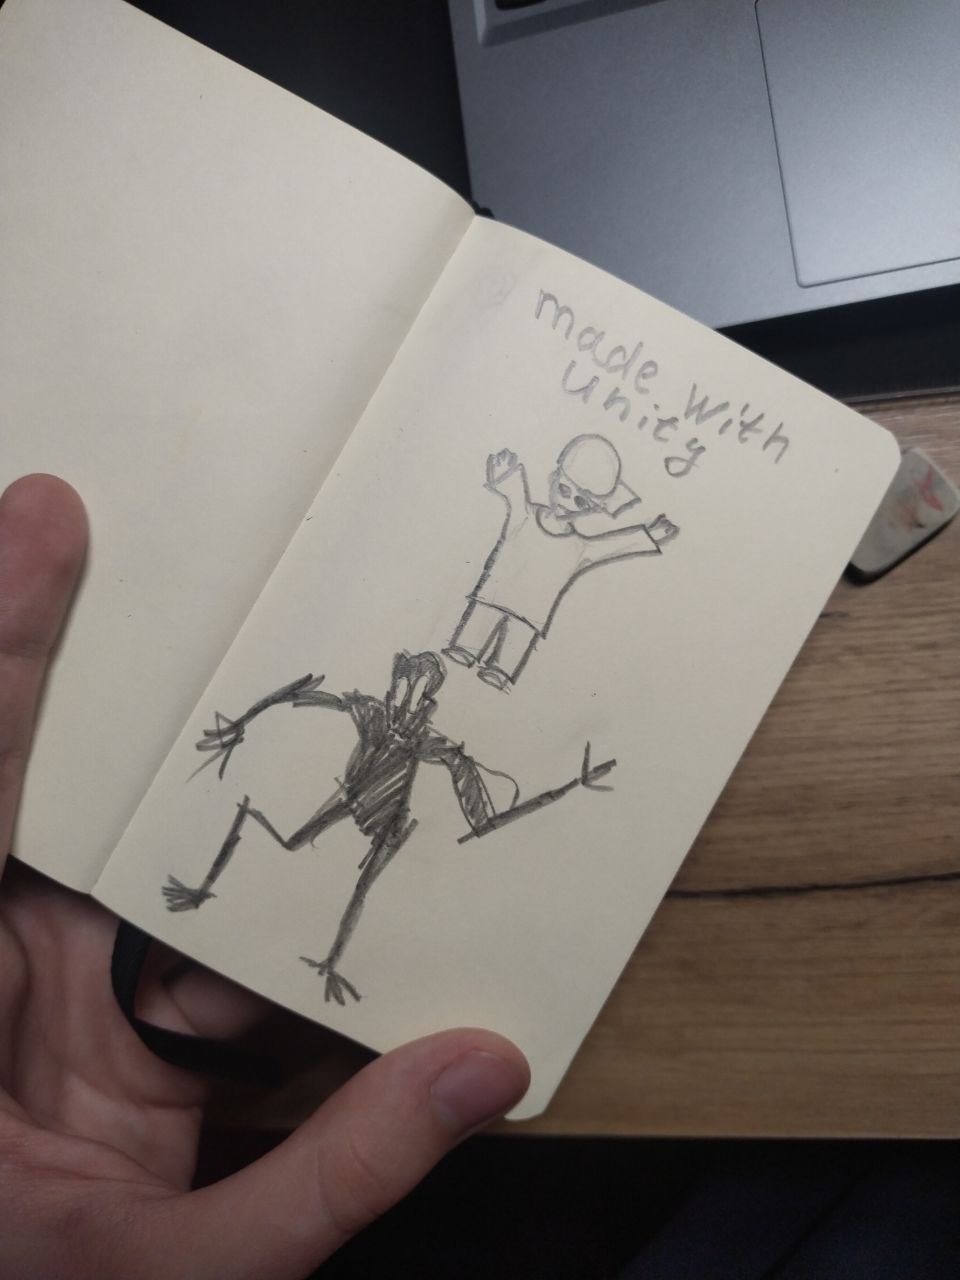 made with
unity